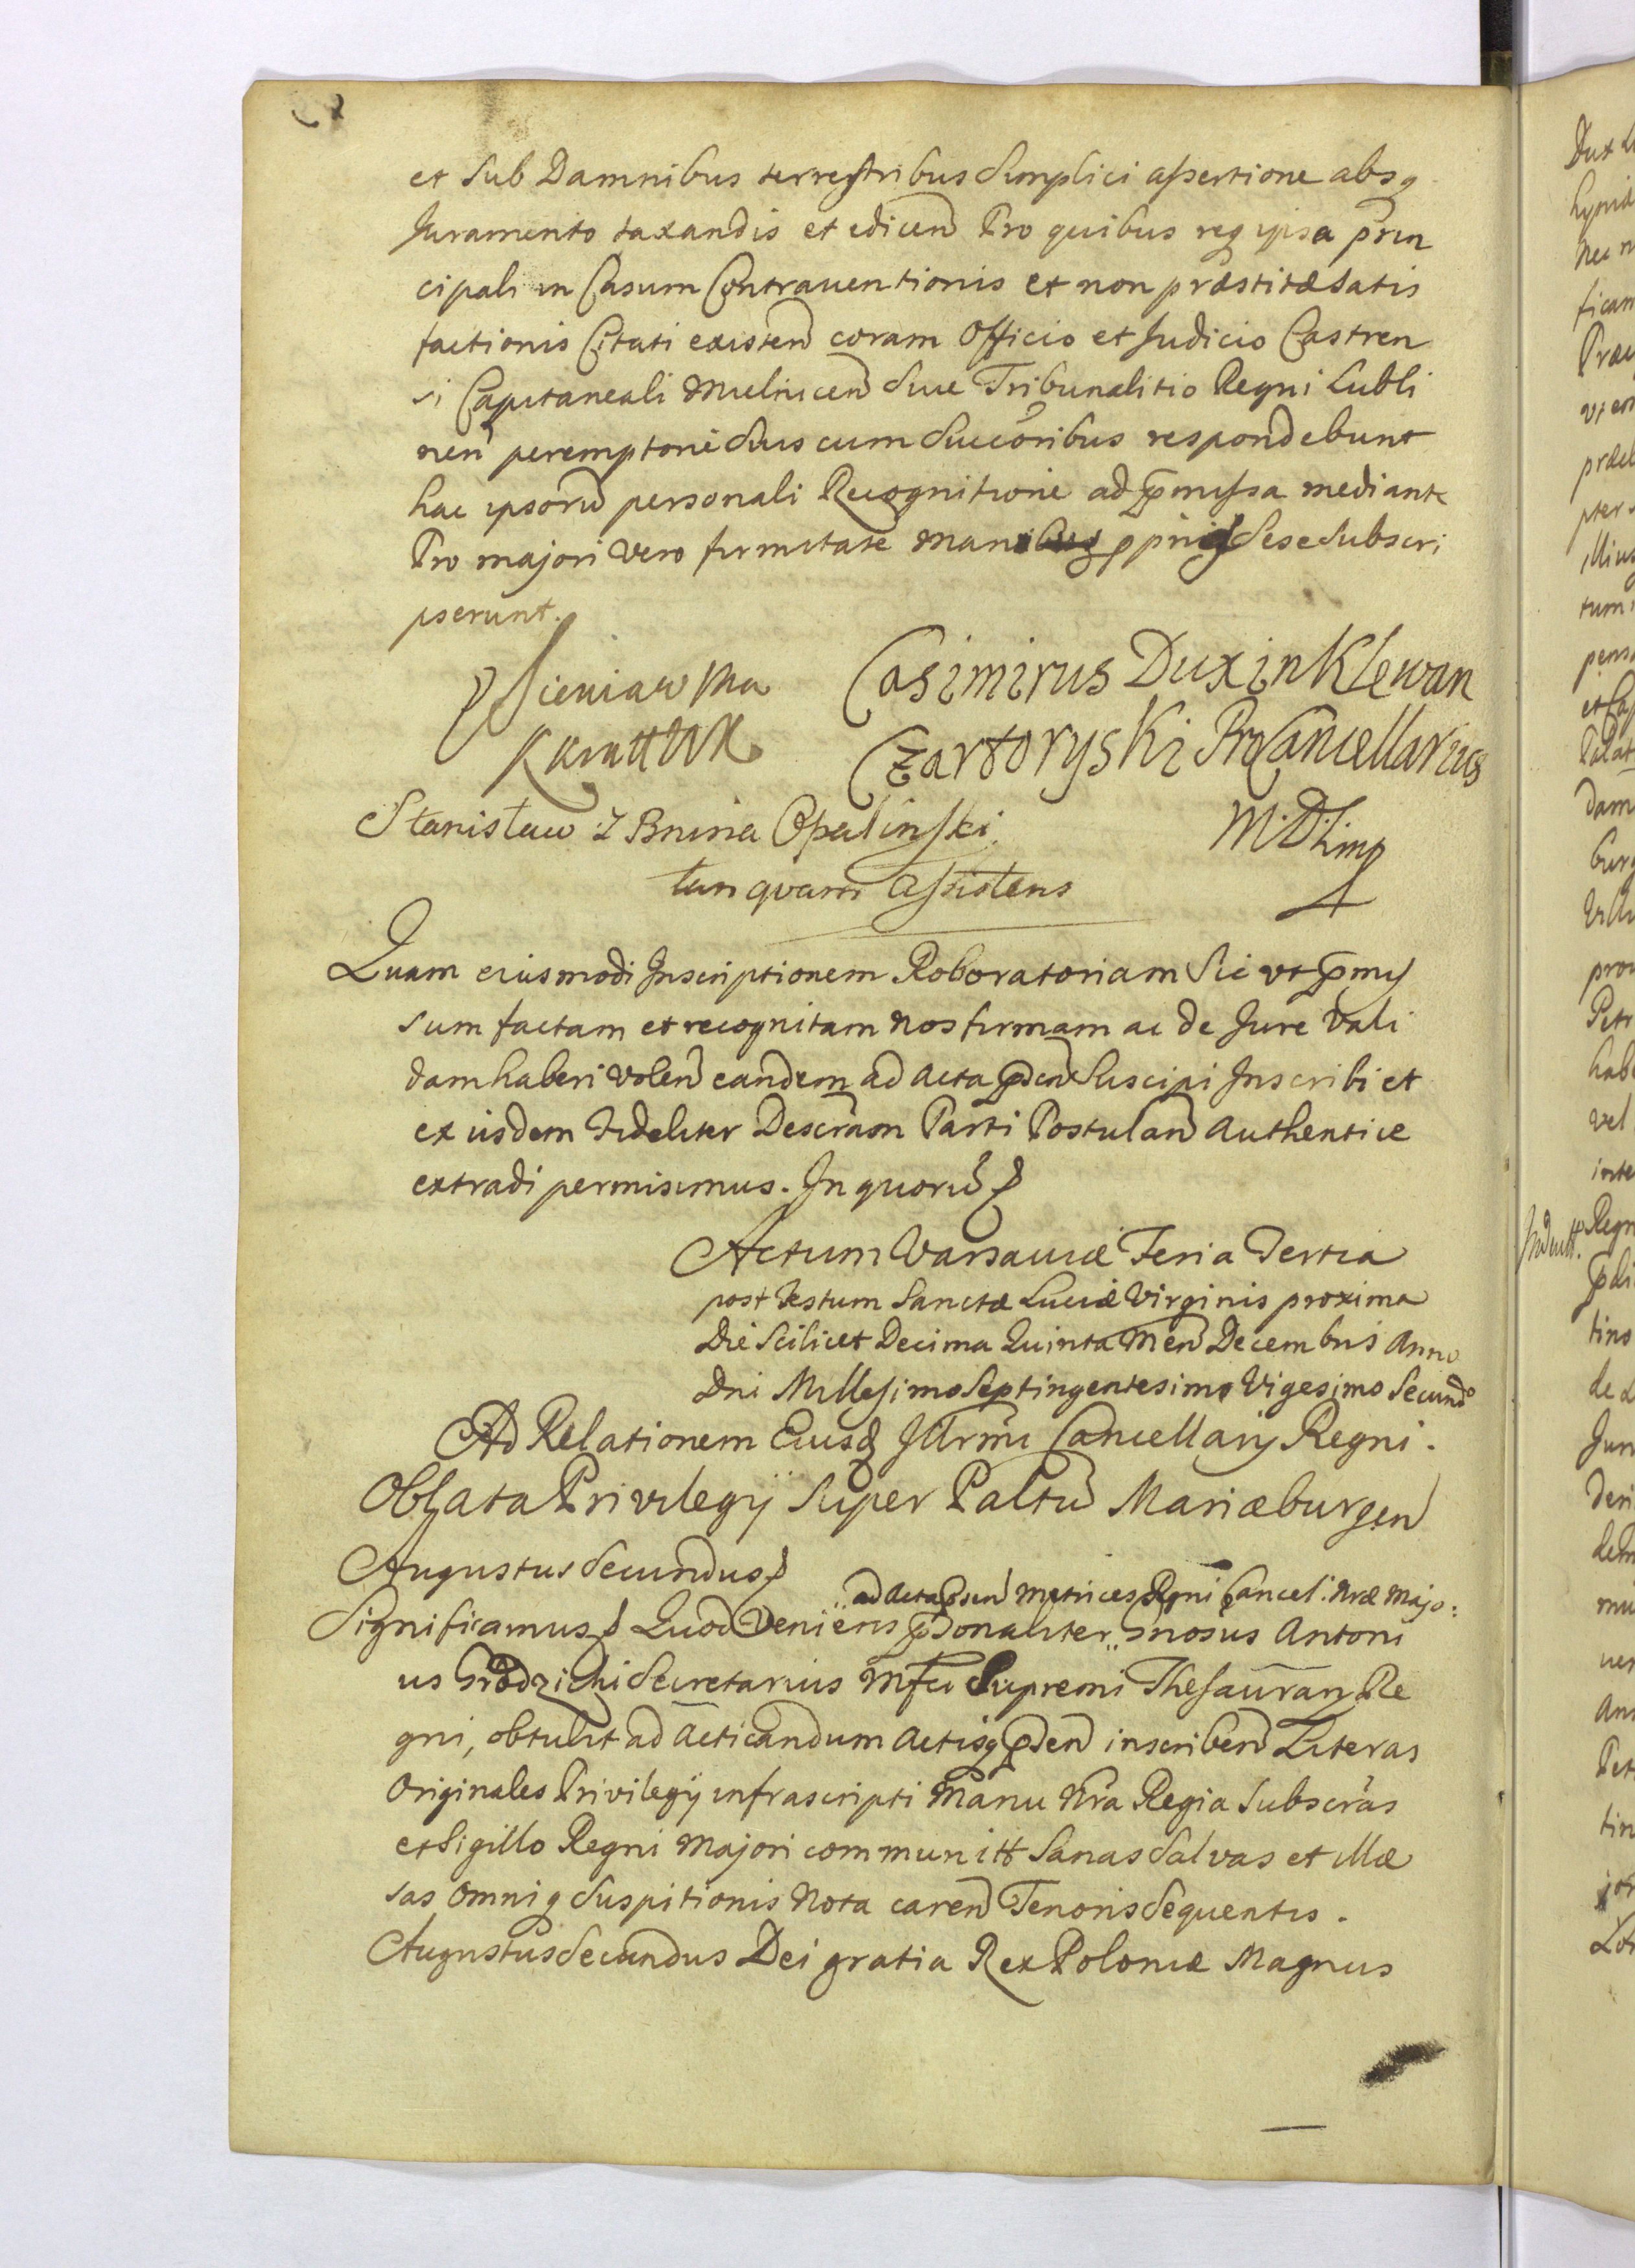 et sub Damnibus terrestribus simplici assertione absq
Juramento taxandis et edicen Pro quibus req ipsa prin
cipali in Casum Contrauentionis et non præstitæ satis
factionis Citati existen coram Officio et Judicio Castren
si Capitaneali Mielnicen siue Tribunalitio Regni Lubli
nen peremptorie suis cum succoribus respondebunt
hac ipsoru personali Recognitione ad pmissa mediante
Pro majori vero firmitate ppriis sese subscri
pserunt.
Sieniawska
Casimirus Dux in Klewan
Czartoryski ProCancellarius
M. D. Lit mp
Stanisław z Bnina Opalinski
tanquam assistens
Quam eiusmodi Inscriptionem Roboratoriam Sic vt pmis
sum factam et recognitam nos firmam ac de Jure vali
dam haberi volen eandem ad acta psen suscipi Inscribi et
ex iisdem fideliter Descram Parti Postulan authentice
extradi permisimus. In quoru
Actum Varsauiæ Feria Tertia
post Festum Sanctæ Luciæ Virginis proxima
Die Scilicet Decima Quinta Men Decembris Anno
Dni Millesimo Septingentesimo Vigesimo Secundo
Ad Relationem Eiusd Illrmi Cancellarij Regni.
Oblata Privilegij super Paltu Mariæburgen
Augustus Secundus
ad acta psen Metrices Regni Cancel: nræ Majo:
Significamus Quod Veniens psonaliter Gnosus Antoni
us Grodzicki Secretarius Mfci Supremi Thesaurarij Re
gni, obtulit ad acticandum actisq psen inscriben Literas
Originales Privilegij infrascripti Manu Nra Regia subscras
et Sigillo Regni Majori communitt Sanas salvas et illæ
sas omniq suspitionis Nota caren Tenoris sequentis.
Augustus Secundus Dei gratia Rex Poloniæ Magnus